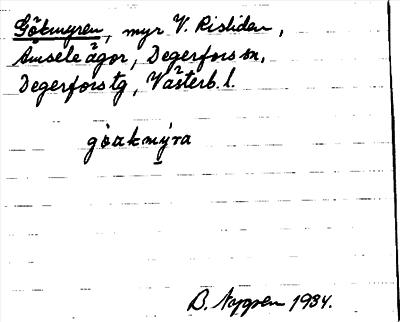 Gökmyren, myr V. Risliden,
Åmsele ägor, Degerfors sn,
Degerfors tg, Västerb. l.
gὸakmýra
B. Nygren 1934.